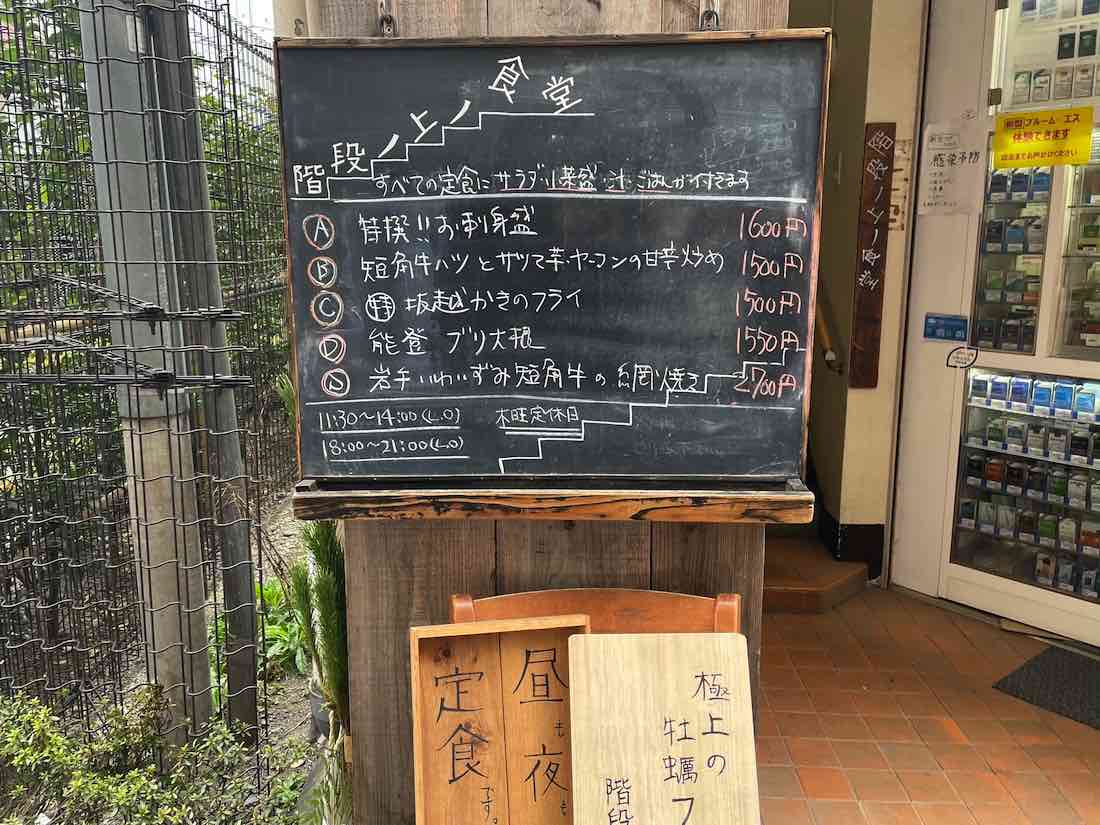 階段ノ上ノ食堂
すべての定食にサラダ・小菜盛・汁・ごはんが付きます
A 特撰!! お刺身盛 1600円
B 短角牛ハツとサツマ芋・ヤーコンの甘辛炒め 1500円
C 坂越かきのフライ 1500円
D 能登 ブリ大根 1550円
岩手いわいずみ短角牛の網焼き 2700円
11:30〜14:00(L.O) 木曜定休日
18:00〜21:00(L.O)
昼も夜も
定食です。
極上の
牡蠣フ
階段
階段ノ上ノ食堂
感染予防
新型プルーム・エス
体験できます